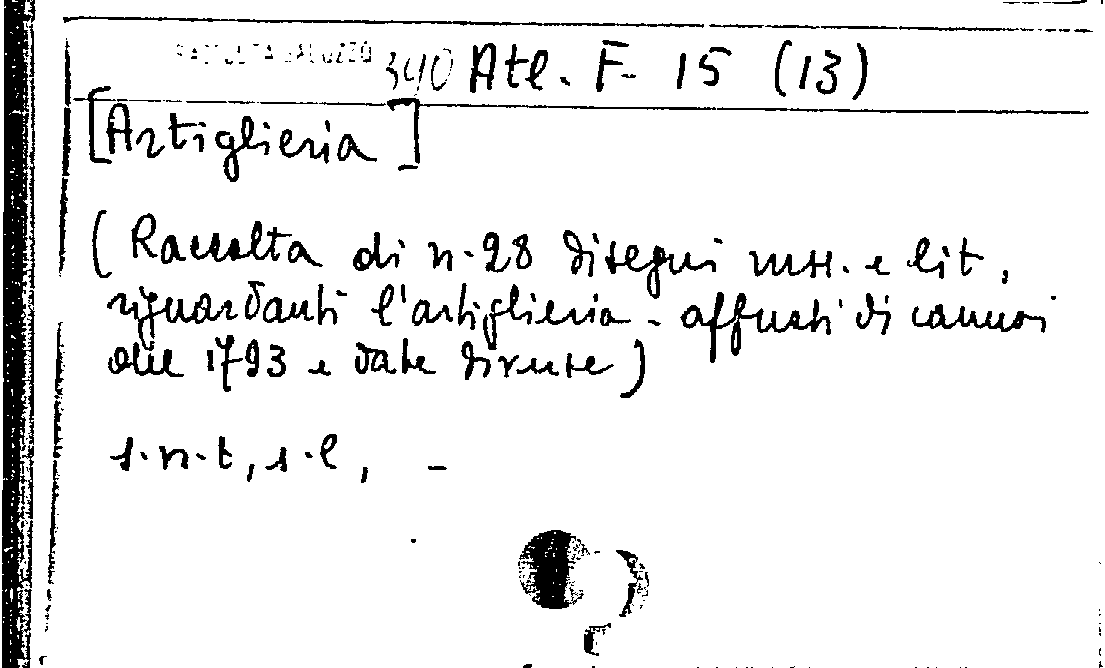 RACCOLTA SALUZZO 390 Atl. F- 15 (13)
[Artiglieria]
(Raccolta di n. 28 disegni mss. e lit,
riguardanti l'artiglieria - affusti di cannoni
1793 e date diverse)
s.n.t, s.l, -